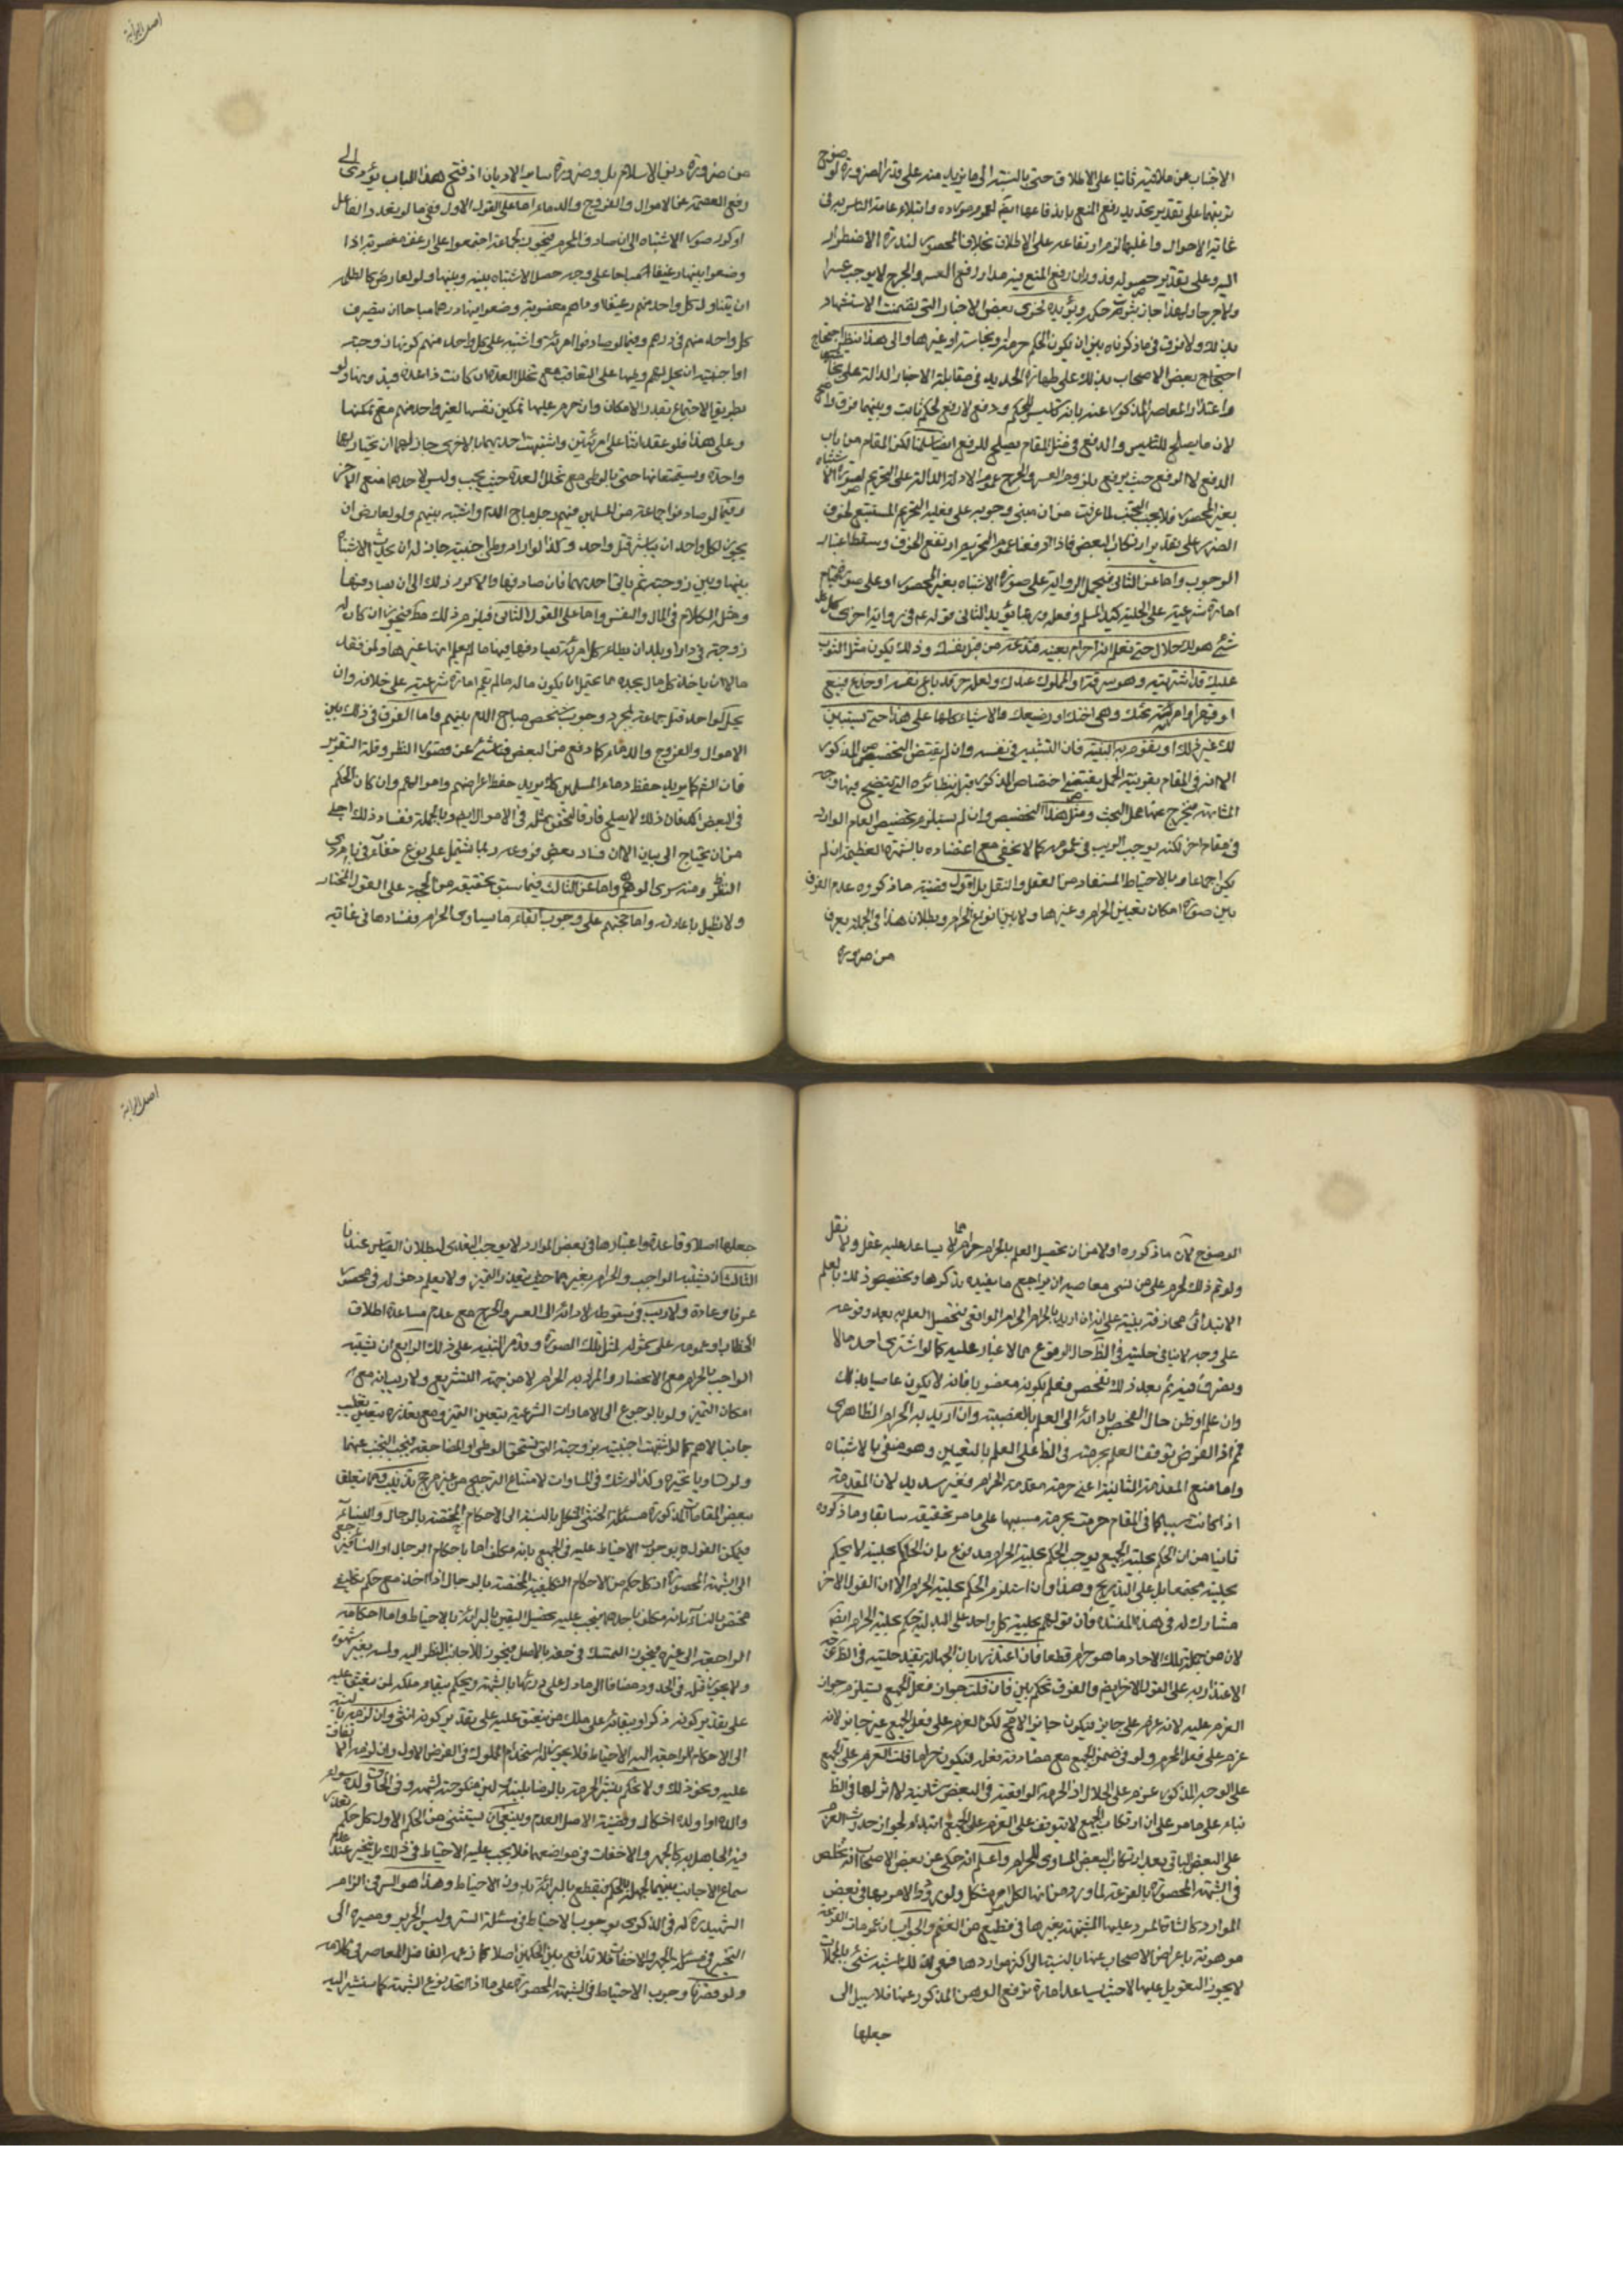 اصل البرائة
الاجتناب عن ملاقيه فاتيا على الاطلاق حتى بالنسبة الى ما يزيد منه على قدر الضرورة لوضوح
ترتبهما على تقدير تحديد رفع المنع باندفاعها ايضا لعموم موارده وابتلاء عامة الناس به في
غالب الاحوال واغلبها لزم ارتفاعه على الاطلاق بخلاف المحصور لندرة الاضطرار
اليه وعلى تقدير حصوله فدوران رفع المنع فيه مدار رفع العسر والحرج لا يوجب عسرا
ولا حرجا ولهذا جاز ثبوت حكمه ويؤيده فحوى بعض الاخبار التي تضمنت الاستشهاد
بذلك ولا فرق فيما ذكرناه بين ان يكون الحكم حرمة او نجاسة او غيرهما والى هذا ينظر احتجاج
احتجاج بعض الاصحاب بذلك على طهارة الحديد في مقابلة الاخبار الدالة على نجاسته
واعتذار المعاصر المذكور عنه بانه تاسيس للحكم ودفع لا رفع لحكم ثابت وبينهما فرق واضح
لان ما يصلح للتاسيس والدفع في مثل المقام يصلح للرفع ايضا سلمنا لكن المقام من باب
الدفع لا الرفع حيث يرفع بلزوم العسر والحرج عموم الادلة الدالة على التحريم لصورة الاشتباه
بغير المحصور فلا يجب التجنب لما عرفت من ان مبنى وجوبه على فعلية التحريم المستتبع لخوف
الضرر على تقدير ارتكاب البعض فاذا ارفعنا عموم التحريم ارتفع الخوف وسقط اعتبار
الوجوب واما عن الثاني فبحمل الرواية على صورة الاشتباه بغير المحصور او على صورة قيام
امارة شرعية على الحلية كيد المسلم وفعله وربما يؤيد الثاني قوله ع في رواية اخرى كل
شئ هو لك حلال حتى تعلم انه حرام بعينه فتدعه من قبل نفسك وذلك يكون مثل الثوب
عليك قد اشتريته وهو سرقة او المملوك عندك ولعله حر قد باع نفسه او خدع فبيع
او قهر او امرأة تحتك وهي اختك او رضيعتك والاشياء كلها على هذا حتى يستبين
لك غير ذلك او تقوم به البينة فان التشبيه في نفسه وان لم يقتض التخصيص بالمذكور
الا انه في المقام بقرينة الحمل يقتضي اختصاص المذكور قبله بنظائره التي يتضح فيها وجه
المشابهة فيخرج عنها محل البحث ومثل هذا التخصيص وان لم يستلزم تخصيص العام الوارد
في مقام اخر لكنه يوجب الريب في عمومه كما لا يخفى مع اعتضاده بالشهرة العظيمة ان لم
يكن اجماعا وبالاحتياط المستفاد من العقل والنقل بل اقول قضية ما ذكروه عدم الفرق
بين صورة امكان تعيين الحرام وغيرها ولا بين انواع الحرام وبطلان هذا في الجملة يعرف
من ضرورة
من ضرورة دين الاسلام بل وضرورة ساير الاديان اذ فتح هذا الباب يؤدي الى
رفع العصمة عن الاموال والفروج والدماء اما على القول الاول ففي ما لو تعدد الفاعل
او كرر صور الاشتباه الى ان صادف المحرم فيجوز لجماعة اجتمعوا على ارغفة مغصوبة اذا
وضعوا بينها رغيفا مباحا على وجه حصل الاشتباه بينه وبينها ولو لعارض كالظلمة
ان يتناول كل واحد منهم رغيفا ودراهم مغصوبة وضعوا بينها درهما مباحا ان يتصرف
كل واحد منهم في درهم وفيما لو صادفوا امرئة واشتبه على كل واحد منهم كونها زوجته
او اجنبية ان يحل لهم وطيها على التعاقب مع تخلل العدة ان كانت ذا عدة فيه وبها ولو
بطريق الاجتماع بقدر الامكان وان حرم عليها تمكين نفسها لغير واحد منهم مع تمكنها
وعلى هذا فلو عقد اثنان على امرئتين واشتبهت احديهما بالاخرى جاز لهما ان يختار ايهما
واحدة ويستمتعا بها حتى بالوطي مع تخلل العدة حيث يجب وليس لاحدهما منع الاخر
وفيما لو صادفوا جماعة من المسلمين فيهم رجل مباح الدم واشتبه بينهم ولو لعارض ان
يجوز لكل واحد ان يباشر قتل واحد وكذا لو اراد وطي اجنبية جاز له ان يحدث الاشتباه
بينها وبين زوجته ثم ياتي احديهما فان صادفها والا كرر ذلك الى ان يصادفها
ومثله الكلام في المال والنفس واما على القول الثاني فيلزم ذلك مطلقا فيجوز ان كان له
زوجة في دار او بلد ان يطاء كل امرئة يصادفها فيها ما لم يعلم انها غيرها ولمن فقد
مالا ان ياخذ كل مال يجده مما يحتمل ان يكون ماله ما لم تقم امارة شرعية على خلافه وان
يحل لواحد قتل جماعة لمجرد وجوب شخص مباح الدم بينهم واما الفرق في ذلك بين
الاموال والفروج والدماء كما وقع من البعض فناشئ عن قصور النظر وقلة التدبر
فان الشرع كما يريد حفظ دماء المسلمين كذلك يريد حفظ اعراضهم واموالهم وان كان الحكم
في البعض اكد فان ذلك لا يصلح فارقا لتحقق مثله في الاموال ايضا وبالجملة ففساد ذلك اجلى
من ان يحتاج الى بيان الا ان فساد بعض فروعه ربما يشتمل على نوع خفاء في بادي
النظر ومنه سرى الوهم واما عن الثالث فيما سبق تحقيقه من الحجة على القول المختار
ولا نطيل باعادته واما حجتهم على وجوب ابقاء ما يساوي الحرام ففسادها في غاية
اصل البرائة
الوضوح لان ما ذكروه اولا من ان تحصيل العلم بالحرام حرام مما لا يساعد عليه عقل ولا نقل
ولو تم ذلك لحرم على من نسي معاصيه ان يراجع ما يفيده بذكرها وتخصيص ذلك بالعلم
الابتدائي مجازفة بينة على انه ان اريد بالحرام الحرام الواقعي فتحصيل العلم به بعد وقوعه
على وجه لا ينافي حليته في الظ حال الوقوع مما لا غبار عليه كما لو اشترى احد مالا
وتصرف فيه ثم بعد ذلك تفحص فعلم بكونه مغصوبا فانه لا يكون عاصيا بذلك
وان علم او ظن حال الفحص بادائه الى العلم بالغصبية وان اريد به الحرام الظاهري
فمم اذ الفرض توقف العلم بحرمته في الظ على العلم بالتعيين وهو منفي بالاشتباه
واما منع المقدمة الثانية اعني حرمة مقدمة الحرام فغير سديد لان المقدمة
اذا كانت سببا كما في المقام حرمت بحرمة مسببها على ما مر تحقيقه سابقا وما ذكروه
ثانيا من ان الحكم بحلية الجميع يوجب الحكم بحلية الحرام مدفوع بان الحاكم بحلية لا يحكم
بحلية مجتمعا بل على التدريج وهذا وان استلزم الحكم بحلية الحرام الا ان القول الاخر
مشارك له في هذه المفسدة فان قولهم بحلية كل واحد على البدلية حكم بحلية الحرام ايضا
لان من جملة تلك الاحاد ما هو حرام قطعا فان اعتذر بان الجهالة تفيد حليته في الظ توجه
الاعتذار به على القول الاخر ايضا والفرق تحكم بين فان قلت جواز فعل الجميع يستلزم جواز
العزم عليه لانه عزم على جايز فيكون جايزا الا ان العزم على فعل الجميع غير جايز لانه
عزم على فعل المحرم ولو في ضمن الجميع مع مصادفة فعله فيكون حراما قلت العزم على الجميع
على الوجه المذكور عزم على الحلال اذ الحرمة الواقعية في البعض شانية لا اثر لها في الظ
بناء على ما مر على ان ارتكاب الجميع لا يتوقف على العزم على الجميع ابتداء لجواز حدوث العزم
على البعض الباقي بعد ارتكاب البعض المساوي للحرام واعلم انه حكي عن بعض الاصحاب انه تخلص
في الشبهة المحصورة بالقرعة لما ورد من انها لكل امر مشكل ولورود الامر بها في بعض
الموارد كالشاة الموطوءة المشتبهة بغيرها في قطيع من الغنم والجواب ان عمومات القرعة
موهونة باعراض الاصحاب عنها بالنسبة الى اكثر مواردها فهي لذلك اشبه شئ بالمجملات
لا يجوز التعويل عليها الا حيث يساعد امارة ترفع الوهن المذكور عنها فلا سبيل الى
جعلها
جعلها اصلا وقاعدة واعتبارها في بعض الموارد لا يوجب التعدي لبطلان القياس عندنا
الثالث ان يشتبه الواجب والحرام بغيرهما حيث يتعذر التميز ولا يعلم دخوله في محصور
عرفا وعادة ولا ريب في سقوطه لادائه الى العسر والحرج مع عدم مساعدة اطلاق
الخطاب او عمومه على شموله لمثل تلك الصورة وقد مر التنبيه على ذلك الرابع ان يشتبه
الواجب بالحرام مع الانحصار والمراد به الحرام لا من جهة التشريع ولا ريب انه مع
امكان التميز ولو بالرجوع الى الامارات الشرعية يتعين التميز ومع تعذره يتعين تغليب
جانب الاهم كما لو اشتبهت اجنبية بزوجته التي تستحق الوطي او المضاجعة فيجب التجنب عنهما
ولو تساويا تخير وكذا لو شك في المساوات لامتناع الترجيح من غير مرجح تذنيب ومما يتعلق
ببعض المقامات المذكورة مسئلة الخنثى المشكل بالنسبة الى الاحكام المختصة بالرجال والنساء
فيمكن القول بوجوب الاحتياط عليه في الجميع بانه مكلف اما باحكام الرجال او النساء فيرجع
الى الشبهة المحصورة اذ كل حكم من الاحكام التكليفية المختصة بالرجال اذا اخذ مع حكم تكليفي
مختص بالنساء فانه مكلف باحدهما فيجب عليه تحصيل اليقين بالبرائة بالاحتياط واما احكامه
الراجعة الى غيره فيجوز التمسك في حقه بالاصل فيجوز للاجانب النظر اليه ولمسه بغير شهوة
ولا يجوز قتله في الحدود مضافا الى ما دل على درئها بالشبهة ويحكم ببقاء ملكه لمن ينعتق عليه
على تقدير كونه ذكرا وببقائه على ملك من ينعتق عليه على تقدير كونه انثى وان لزمه بالنسبة
الى الاحكام الراجعة اليه الاحتياط فلا يجوز له استخدام المملوك في الفرض الاول وان لزمه الانفاق
عليه ونحو ذلك ولا يحكم بنشر الحرمة بالرضا بلبنه
والده او اولده اشكال وقضية الاصل العدم وينبغي ان يستثنى من الحكم الاول كل حكم يعذر
فيه الجاهل به كالجهر والاخفات في مواضعهما فلا يجب عليه الاحتياط في ذلك بل يتخير عند عدم
سماع الاجانب بينهما لجهله بالحكم فيقطع بالبرائة بدون الاحتياط وهذا هو السر في الزام
الشهيد ره له في الذكرى بوجوب الاحتياط في مسئلة الستر ولبس الحرير ومصيره الى
التخيير في مسئلة الجهر والاخفات فلا تدافع بين الحكمين اصلا كما زعمه الفاضل المعاصر في كلامه
ولو قصرنا وجوب الاحتياط في الشبهة المحصورة على ما اذا اتحد نوع الشبهة كما سنشير اليه